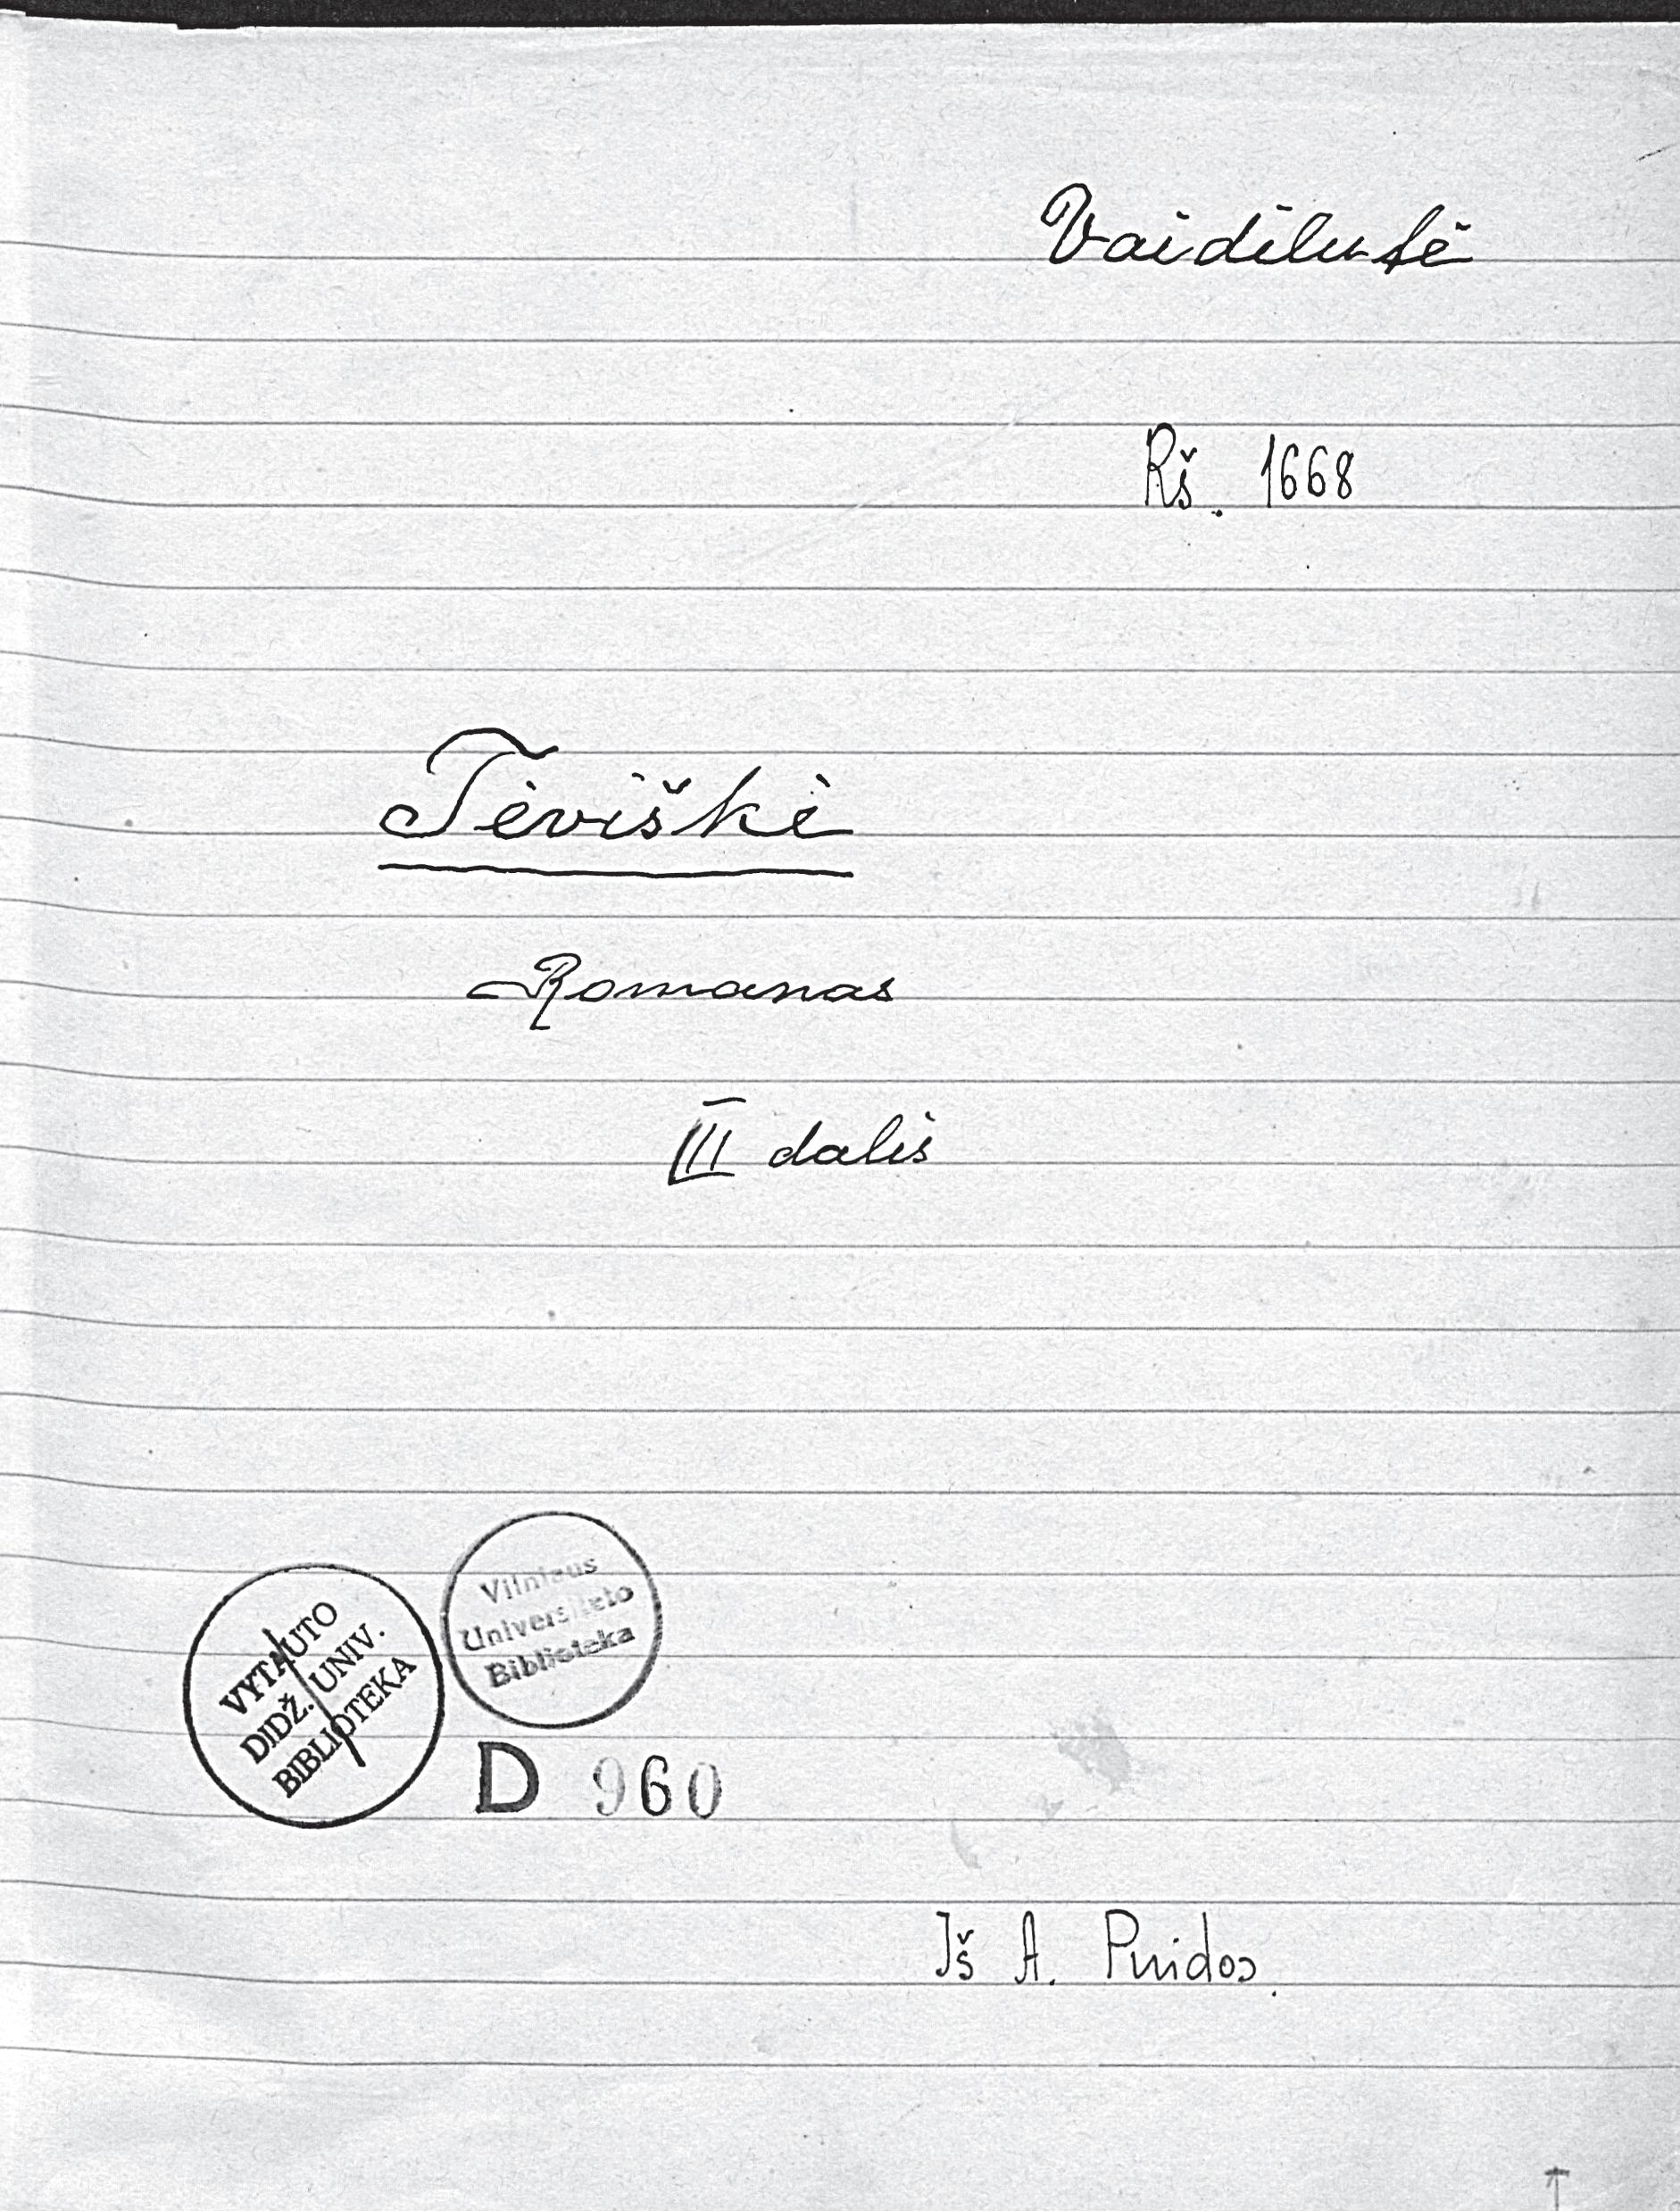 Vaidilutė
Rš. 1668
Tėviškė
Romanas
III dalis
Vilniaus
Universiteto
Biblioteka
VYTAUTO
DIDŽ. UNIV.
BIBLIOTEKA
D 960
Iš A. Puidos.